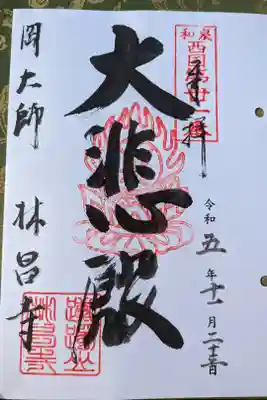 和泉
西国第
奉拝
令和五年十一月二十
大悲殿
岡大師 林昌寺
躑躅山
林昌寺